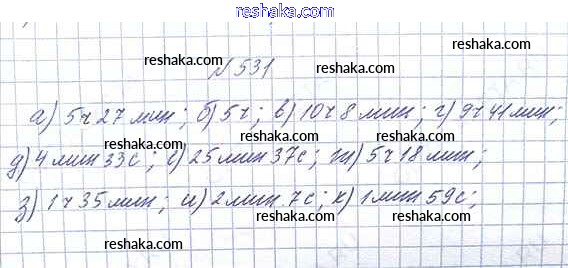 reshak.ru
reshaka.com
№531
reshaka.com reshaka.com
а) 5ч 27 мин; б) 5ч; в) 10ч 8 мин; г) 9ч 41 мин;
reshaka.com
д) 4 мин 33с; е) 25 мин 37с; ж) 5ч 18 мин;
reshaka.com
з) 1ч 35 мин; и) 2 мин 7с; к) 1 мин 59с;
reshaka.com reshaka.com
reshaka.com